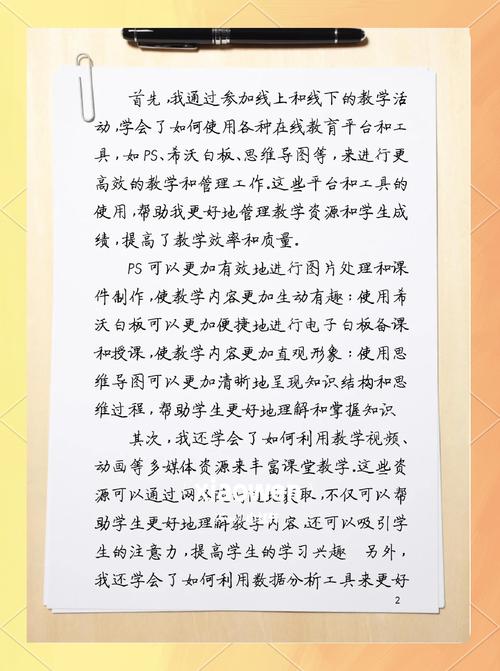 首先,我通过参加线上和线下的教学活
动,学会了如何使用各种在线教育平台和工
具,如PS、希沃白板、思维导图等,来进行更
高效的教学和管理工作.这些平台和工具的
使用,帮助我更好地管理教学资源和学生成
绩,提高了教学效率和质量.
PS可以更加有效地进行图片处理和课
件制作,使教学内容更加生动有趣;使用希
沃白板可以更加便捷地进行电子白板备课
和授课,使教学内容更加直观形象;使用思
维导图可以更加清晰地呈现知识结构和思
维过程,帮助学生更好地理解和掌握知识
其次,我还学会了如何利用教学视频、
动画等多媒体资源来丰富课堂教学.这些资
源可以通过网络 地获取,不仅可以帮
助学生更好地理解教学内容,还可以吸引学
生的注意力,提高学生的学习兴趣 另外,
我还学会了如何利用数据分析工具来更好
2